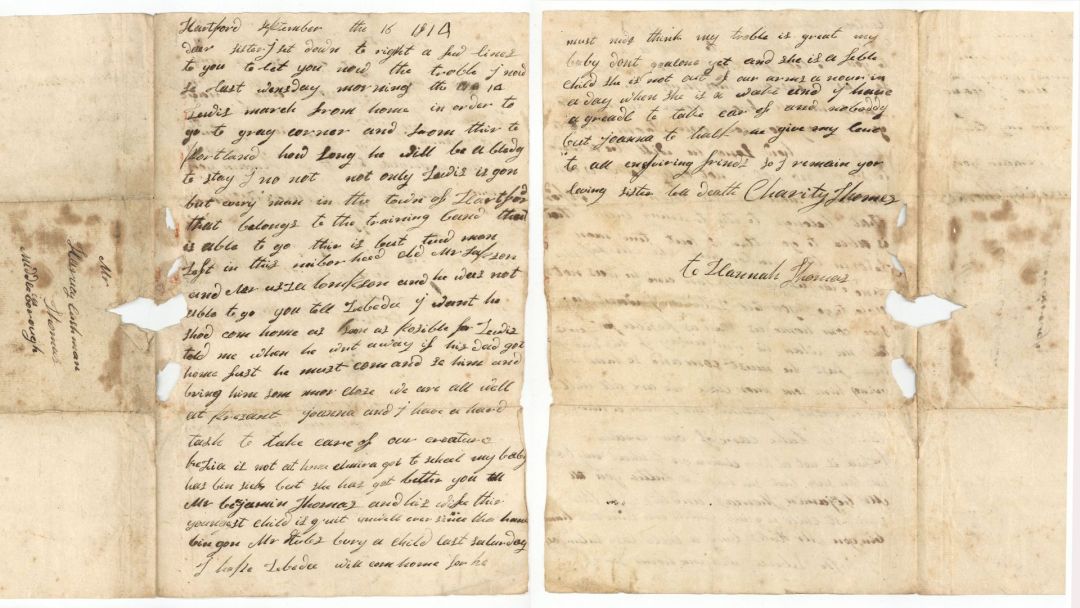 Hartford September the 16 1814
dear sister j set down to right a few lines
to you to let you now the troble j now
se last wensday morning the 14
Lewis march from home in order to
go to gray corner and from thir to
portland how long he will be abledg
to stay j no not not only Lewis is gon
but every man in the town of Hartford
that belongs to the training band that
is able to go thir is but tend man
left in this neibor hood old Mr
and Mr and he was not
able to go you tell Zebedee j want he
shod com home as soon as posible for Lewis
told me when he wint away if his dad got
home fust he must com and se him and
bring him som mor cloze we are all well
at presant Joanna and j have a hard
task to take care of our creature
is not at home elmira got to scheel my baby
has bin sick but she has got better you tell
Mr benjamin Thomas and his wife thir
youngest child is quit unwell ever since tha have
bin gon Mr bury a child last saturday
j hopse Zebedee will com home for he
Mr
Harvay Cushman
Thomas
Middleborough
must nids think my troble is great my
baby dont goalone yet and she is a feble
child she is not out of our arms a nour in
a day when she is a wake and j have
a greadl to take car of and nobaddy
but joanna to halp me give my love
to all enquiring frinds so j remain yor
loving sister tell death Charity Thomas
to Hannah Thomas